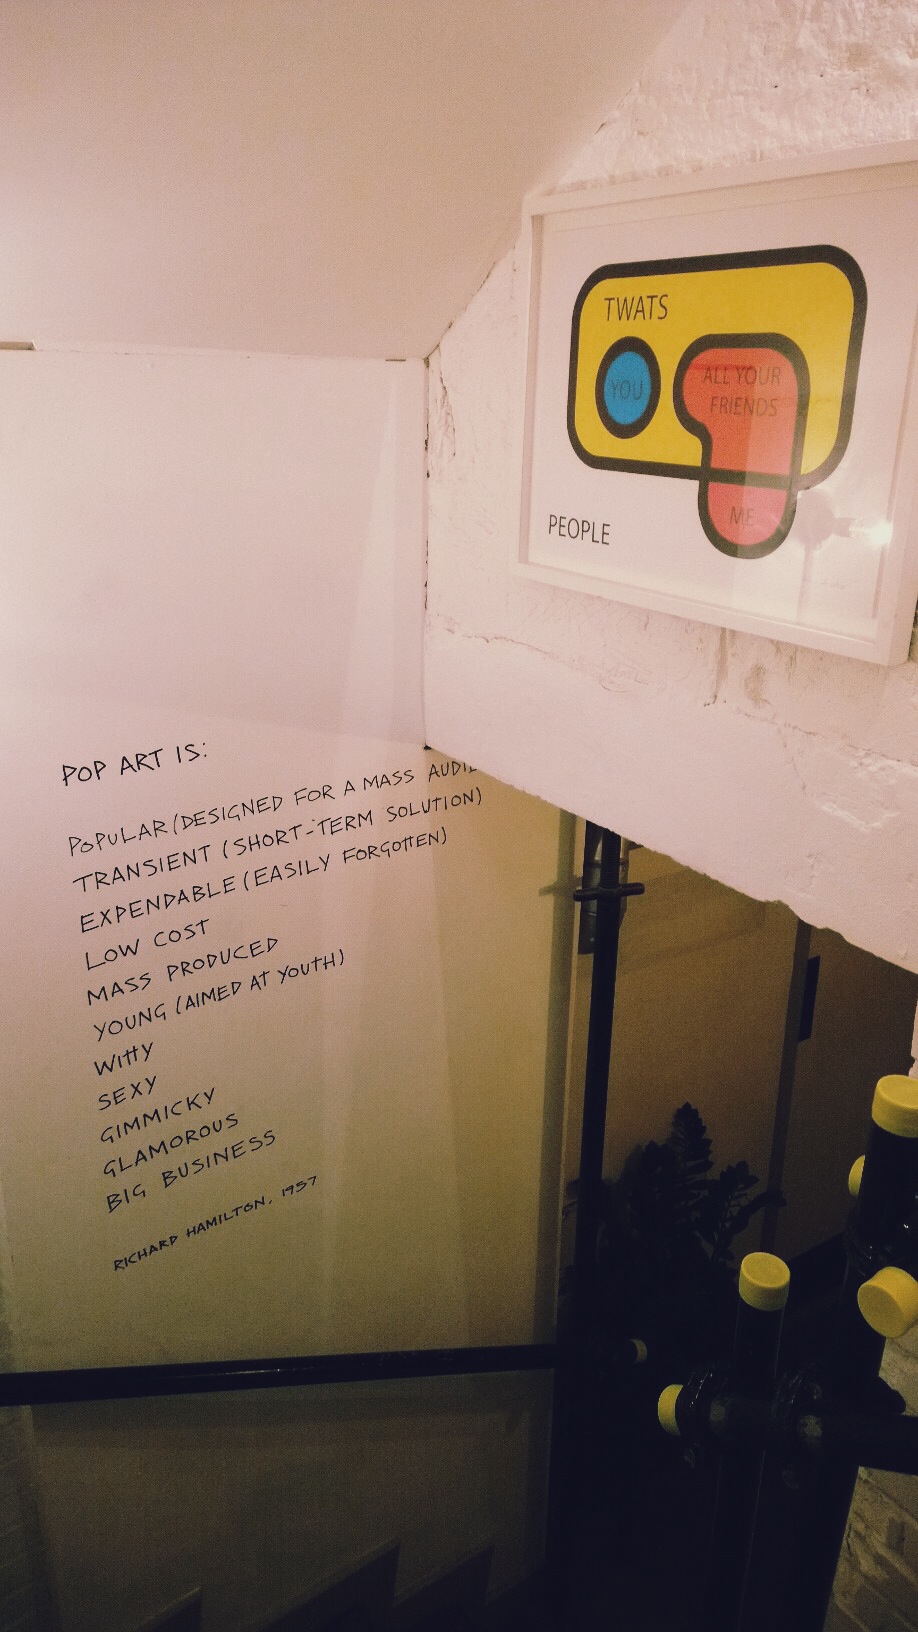 TWATS
YOU
ALL YOUR
FRIENDS
ME
PEOPLE
POP ART IS:
POPULAR (DESIGNED FOR A MASS
TRANSIENT (SHORT-TERM SOLUTION)
EXPENDABLE (EASILY FORGOTTEN)
LOW COST
MASS PRODUCED
YOUNG (AIMED AT YOUTH)
WITTY
SEXY
GIMMICKY
GLAMOROUS
BIG BUSINESS
RICHARD HAMILTON, 1957